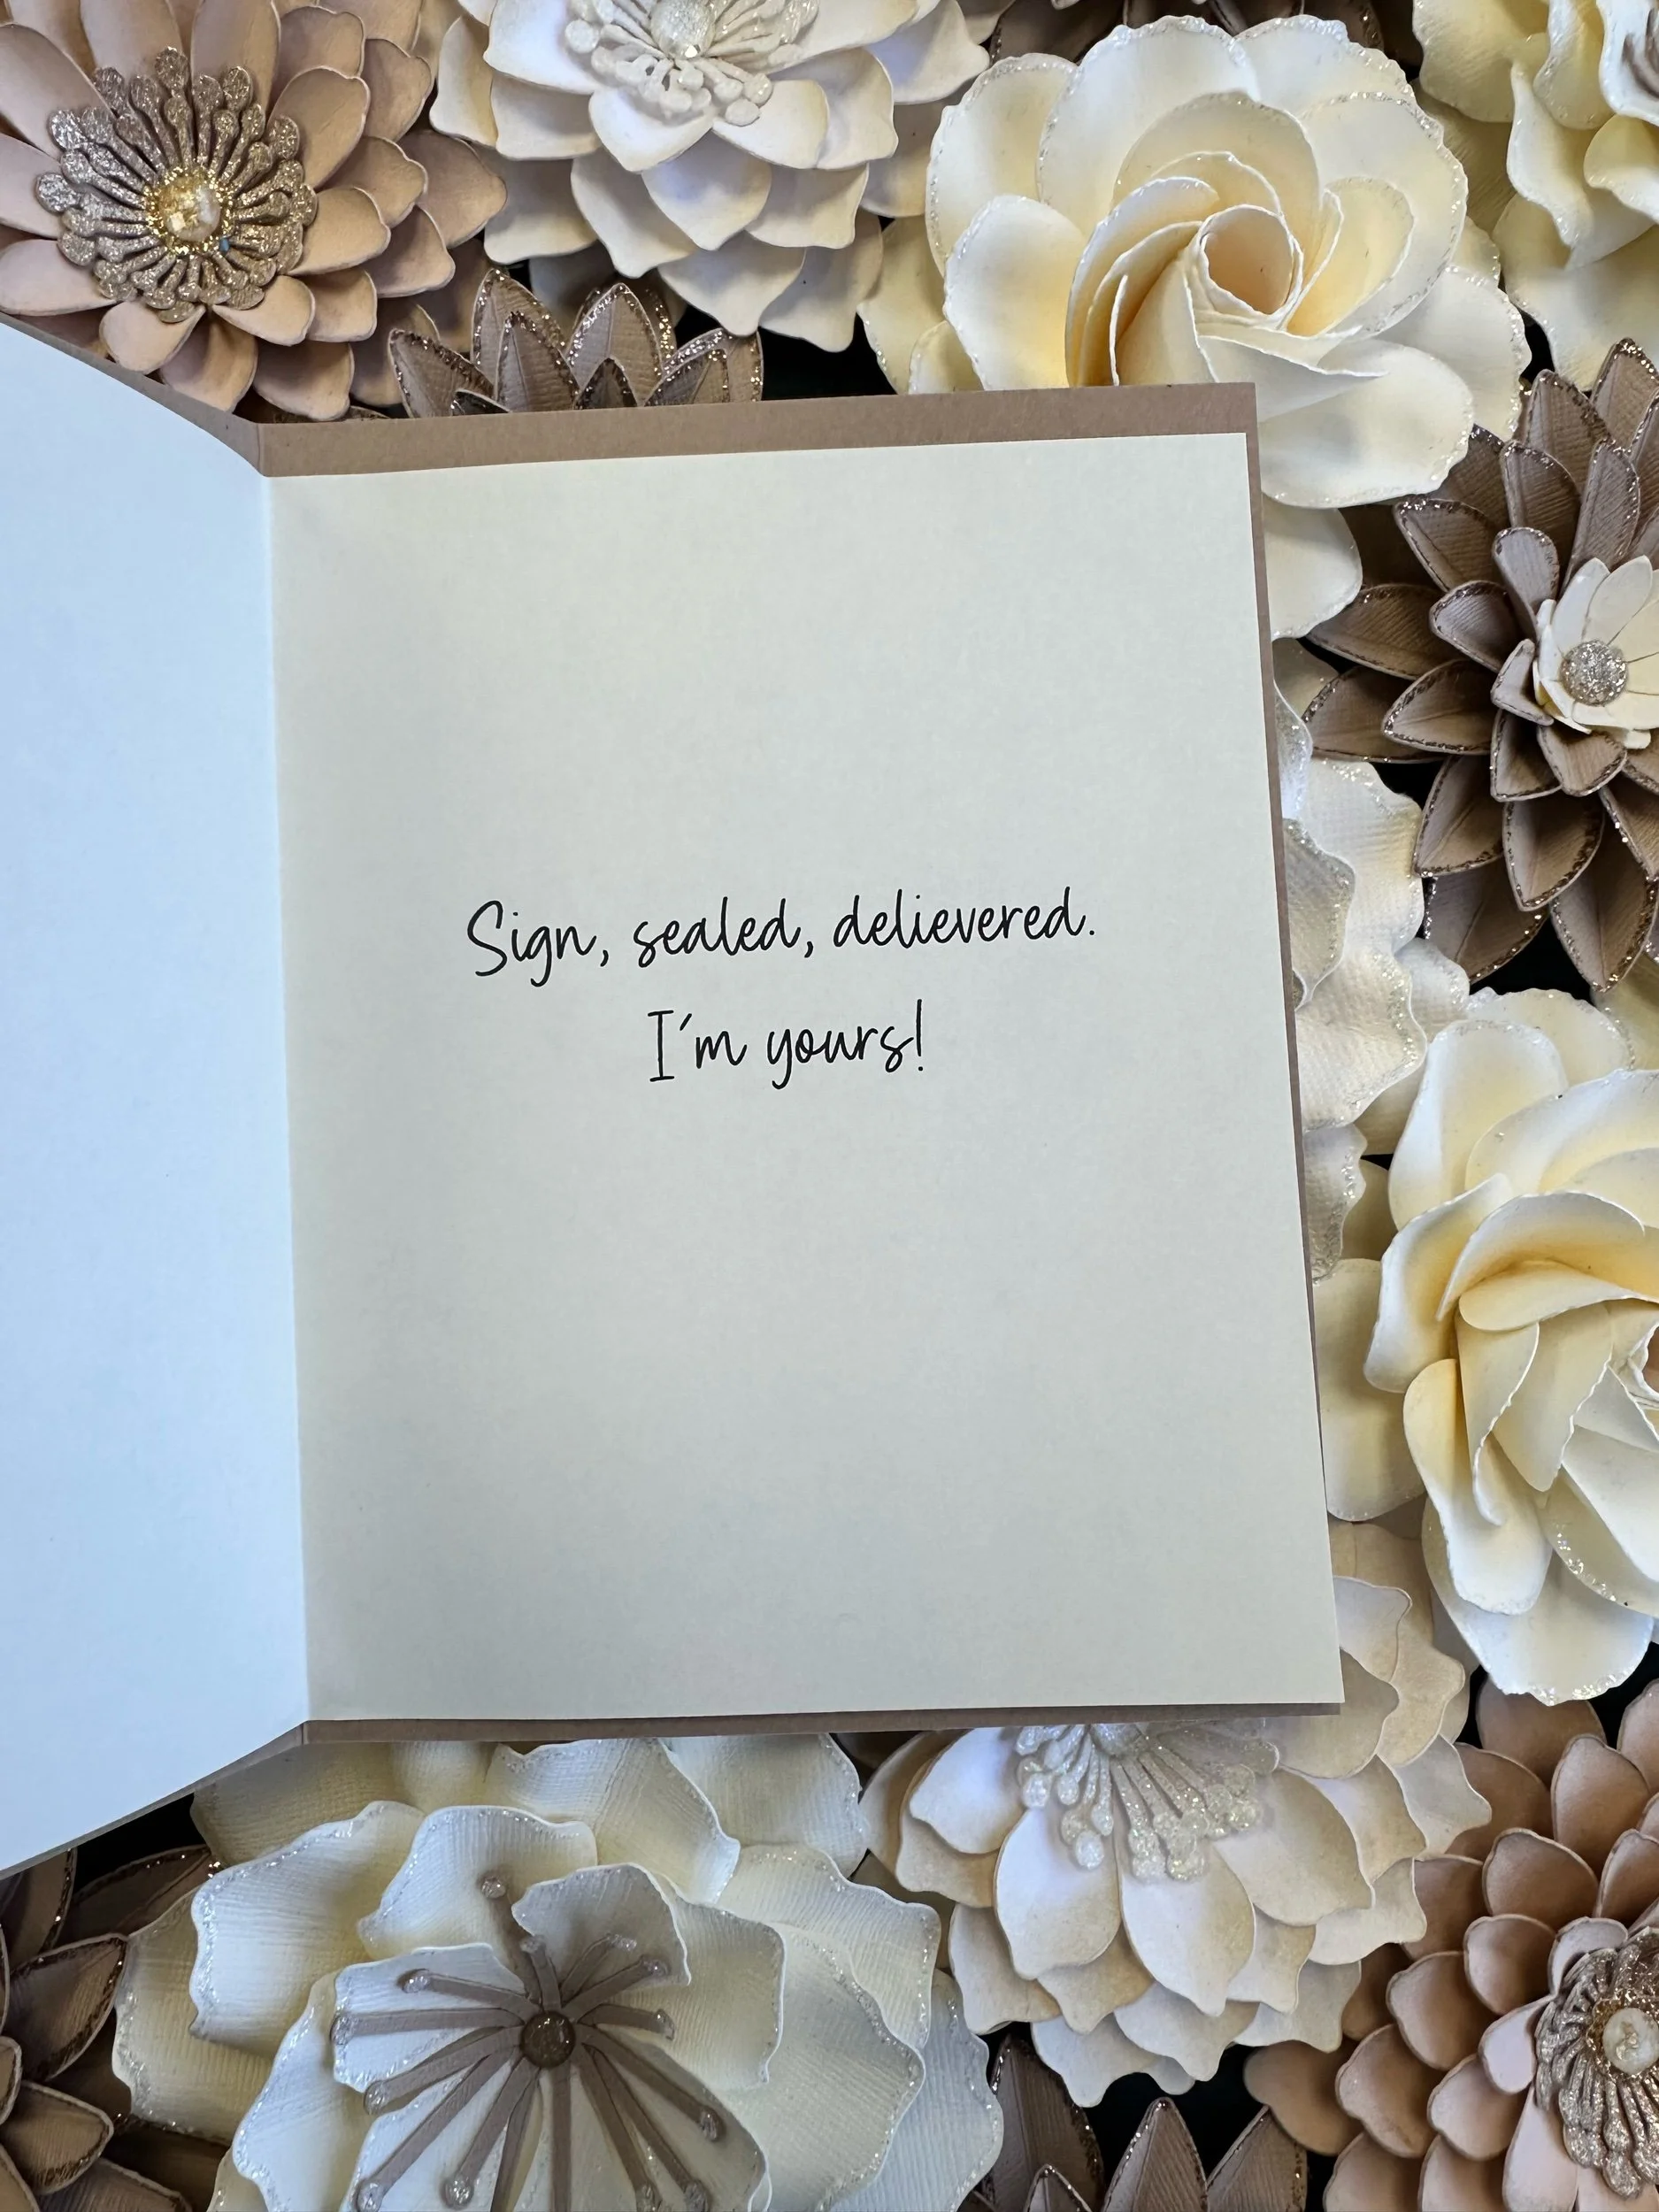 Sign, sealed, delievered.
I'm yours!